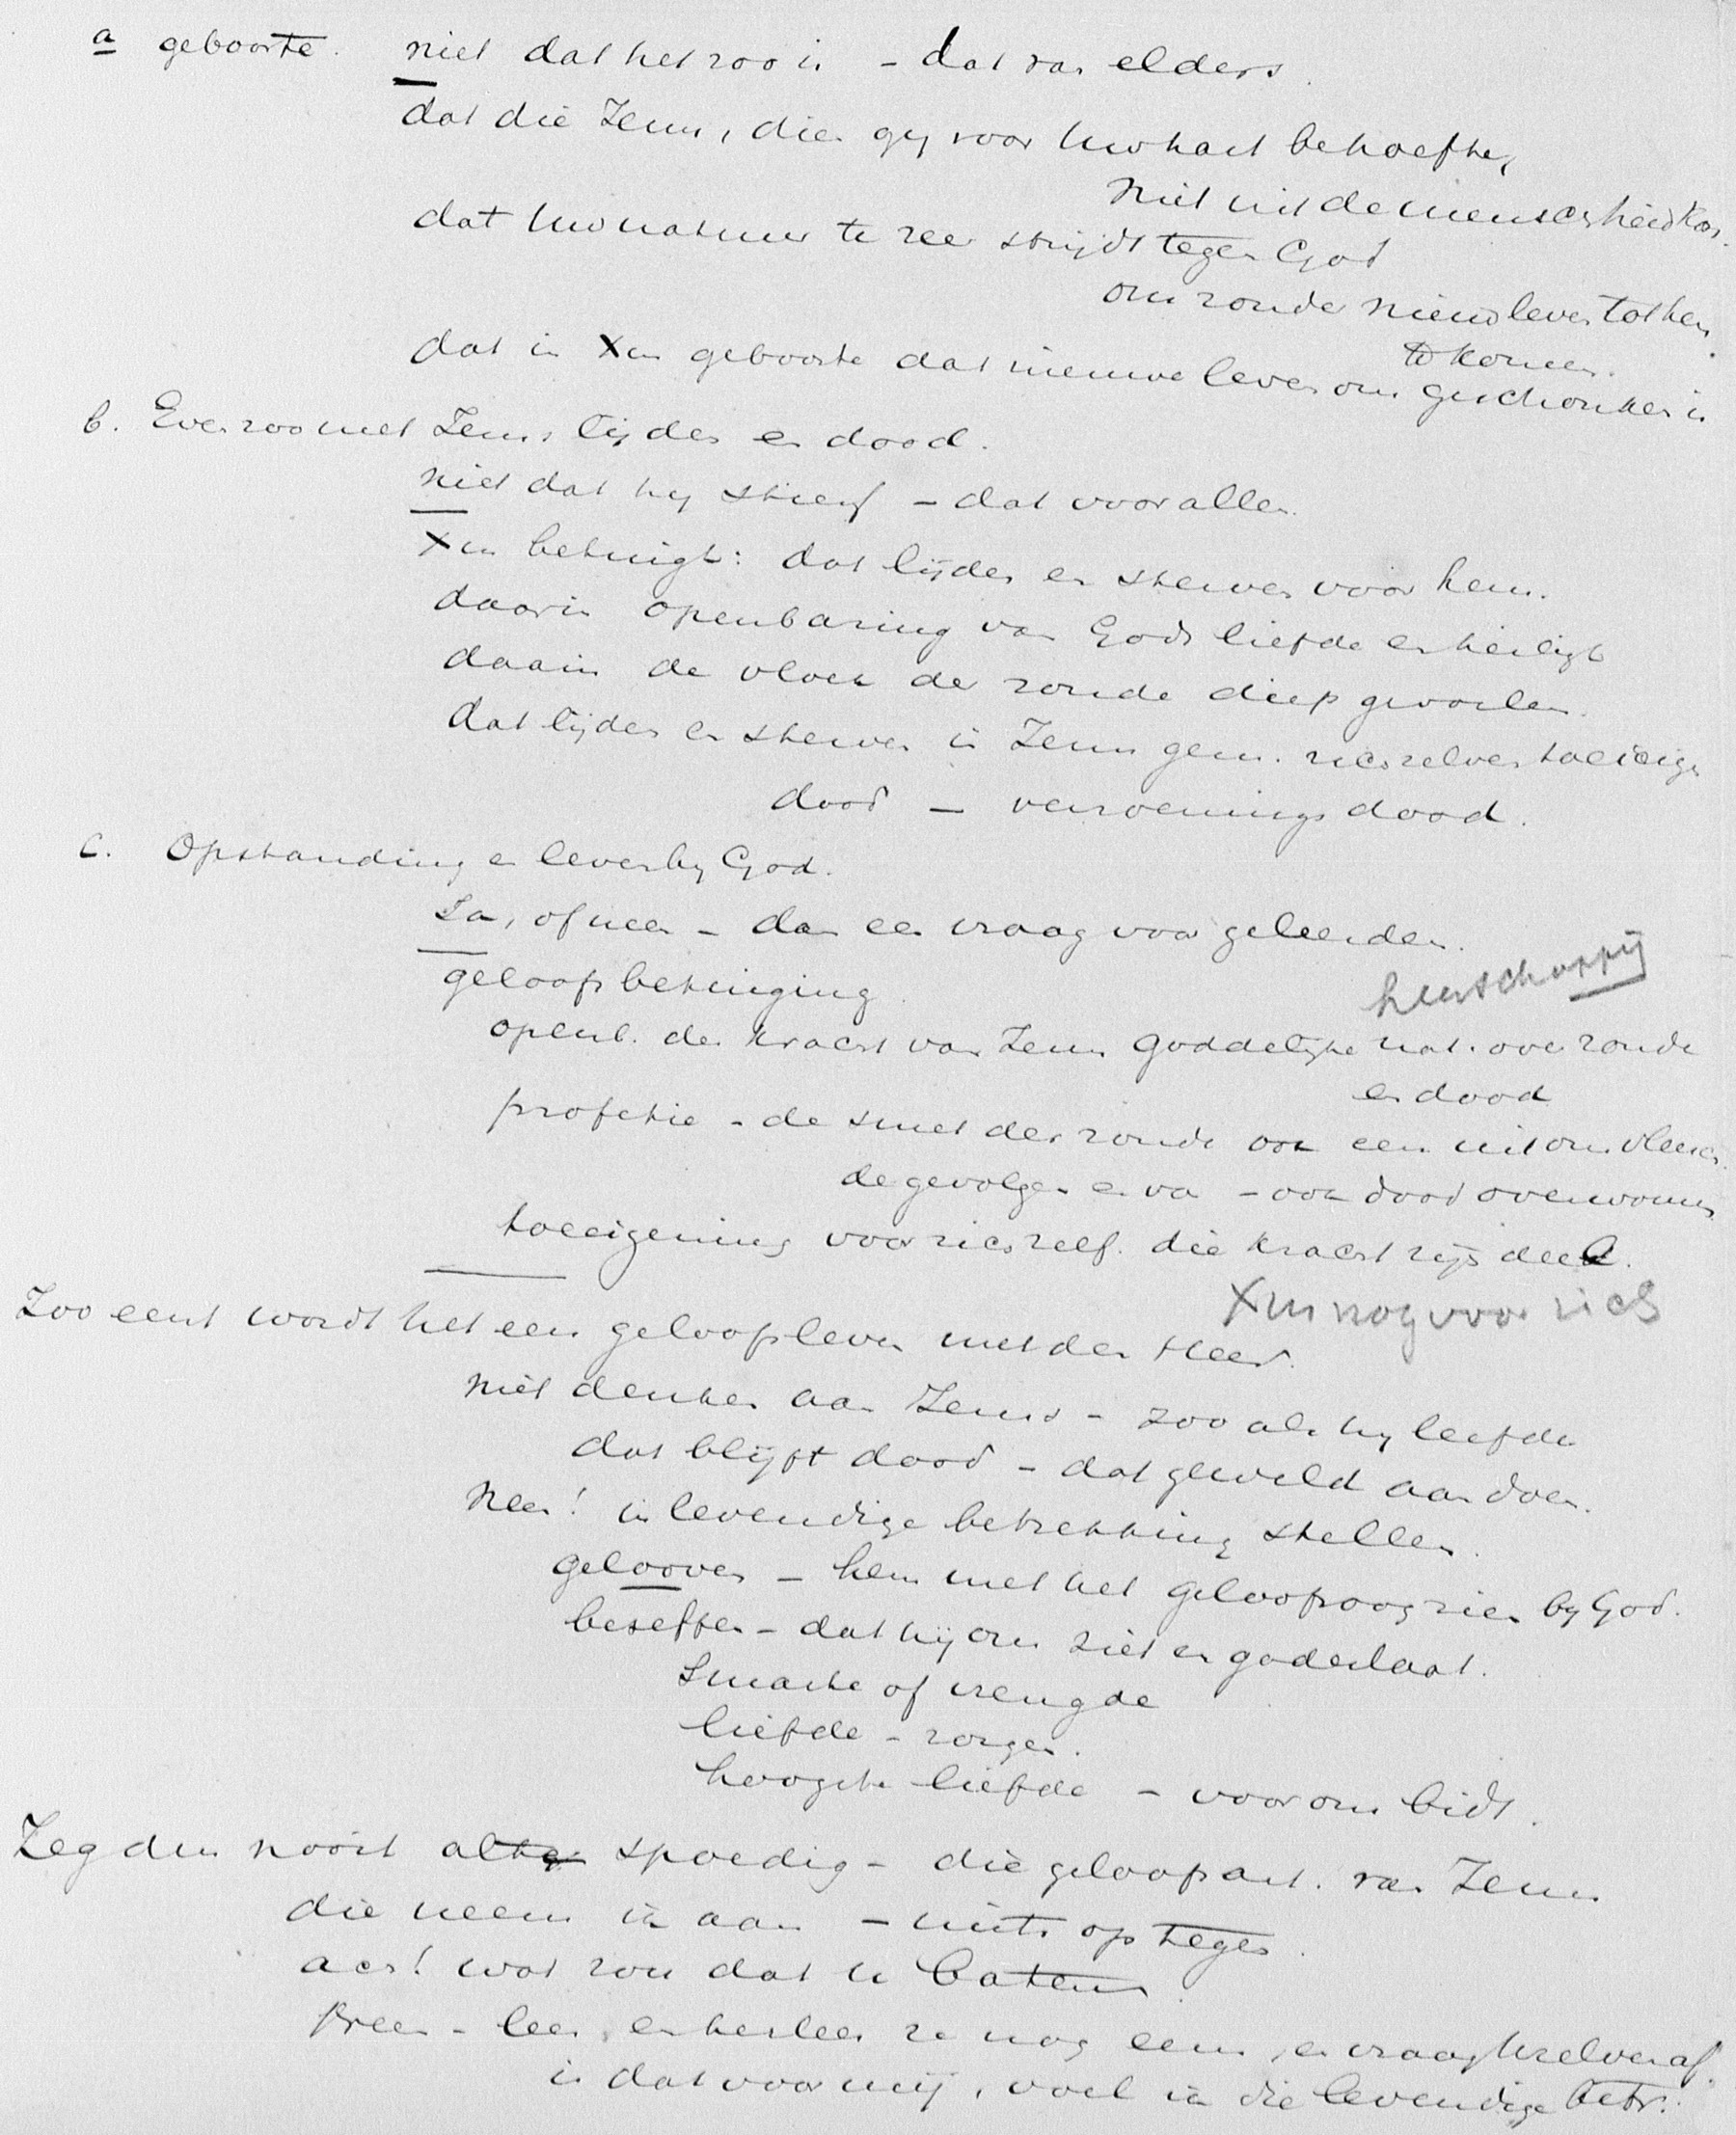 a geboorte. niet dat het zoo is – dat van elders.
dat die Jezus, dien gy voor Uw hart behoefte,
niet uit de menschheid kon.
dat Uw natuur te zeer strijdt tegen God
om zonder nieuw leven tot hem
te komen.
dat in Xus geboorte dat nieuwe leven ons geschonken is
b. Even zoo met Jezus lijden en dood.
niet dat hy stierf – dat voor allen.
Xen betuigt: dat lijden en sterven voor hem.
daarin openbaring van Gods liefde en heiligh
daarin de vloek der zonde diep gevoelen.
dat lijden en sterven in Jezus gem. zich zelven toeëigen
dood – verzoenings dood.
c. Opstanding en leven by God.
Ja, of neen – dan een vraag voor geleerden.
geloofsbetuiging.
heerschappij
openb. der kracht van Jezus goddelijke nat. over zonde
en dood
profetie – de smet der zonde ook een uit ons vleesch
de gevolgen er van – ook dood overwonnen
toeeigening voor zich zelf. die kracht zijn deel.
Xus nog voor zich
Zoo eerst wordt het een geloofsleven met den Heer.
niet denken aan Jezus – zoo als hy leefde
dat blijft dood – dat geweld aan doen.
Neen! in levendige betrekking stellen.
gelooven – hem met het geloofsoog zien by God.
beseffen – dat hij ons ziet en gadeslaat.
smarte of vreugde
liefde – zorgen.
hoogste liefde – voor ons bidt.
Zeg dus nooit al spoedig – die geloofsart. van Jezus
die neem ik aan – niets op tegen.
ach! wat zou dat U baten.
Neen – lees en herlees ze nog eens, en vraag U zelven af.
is dat voor mij, voel ik die levendige betr.